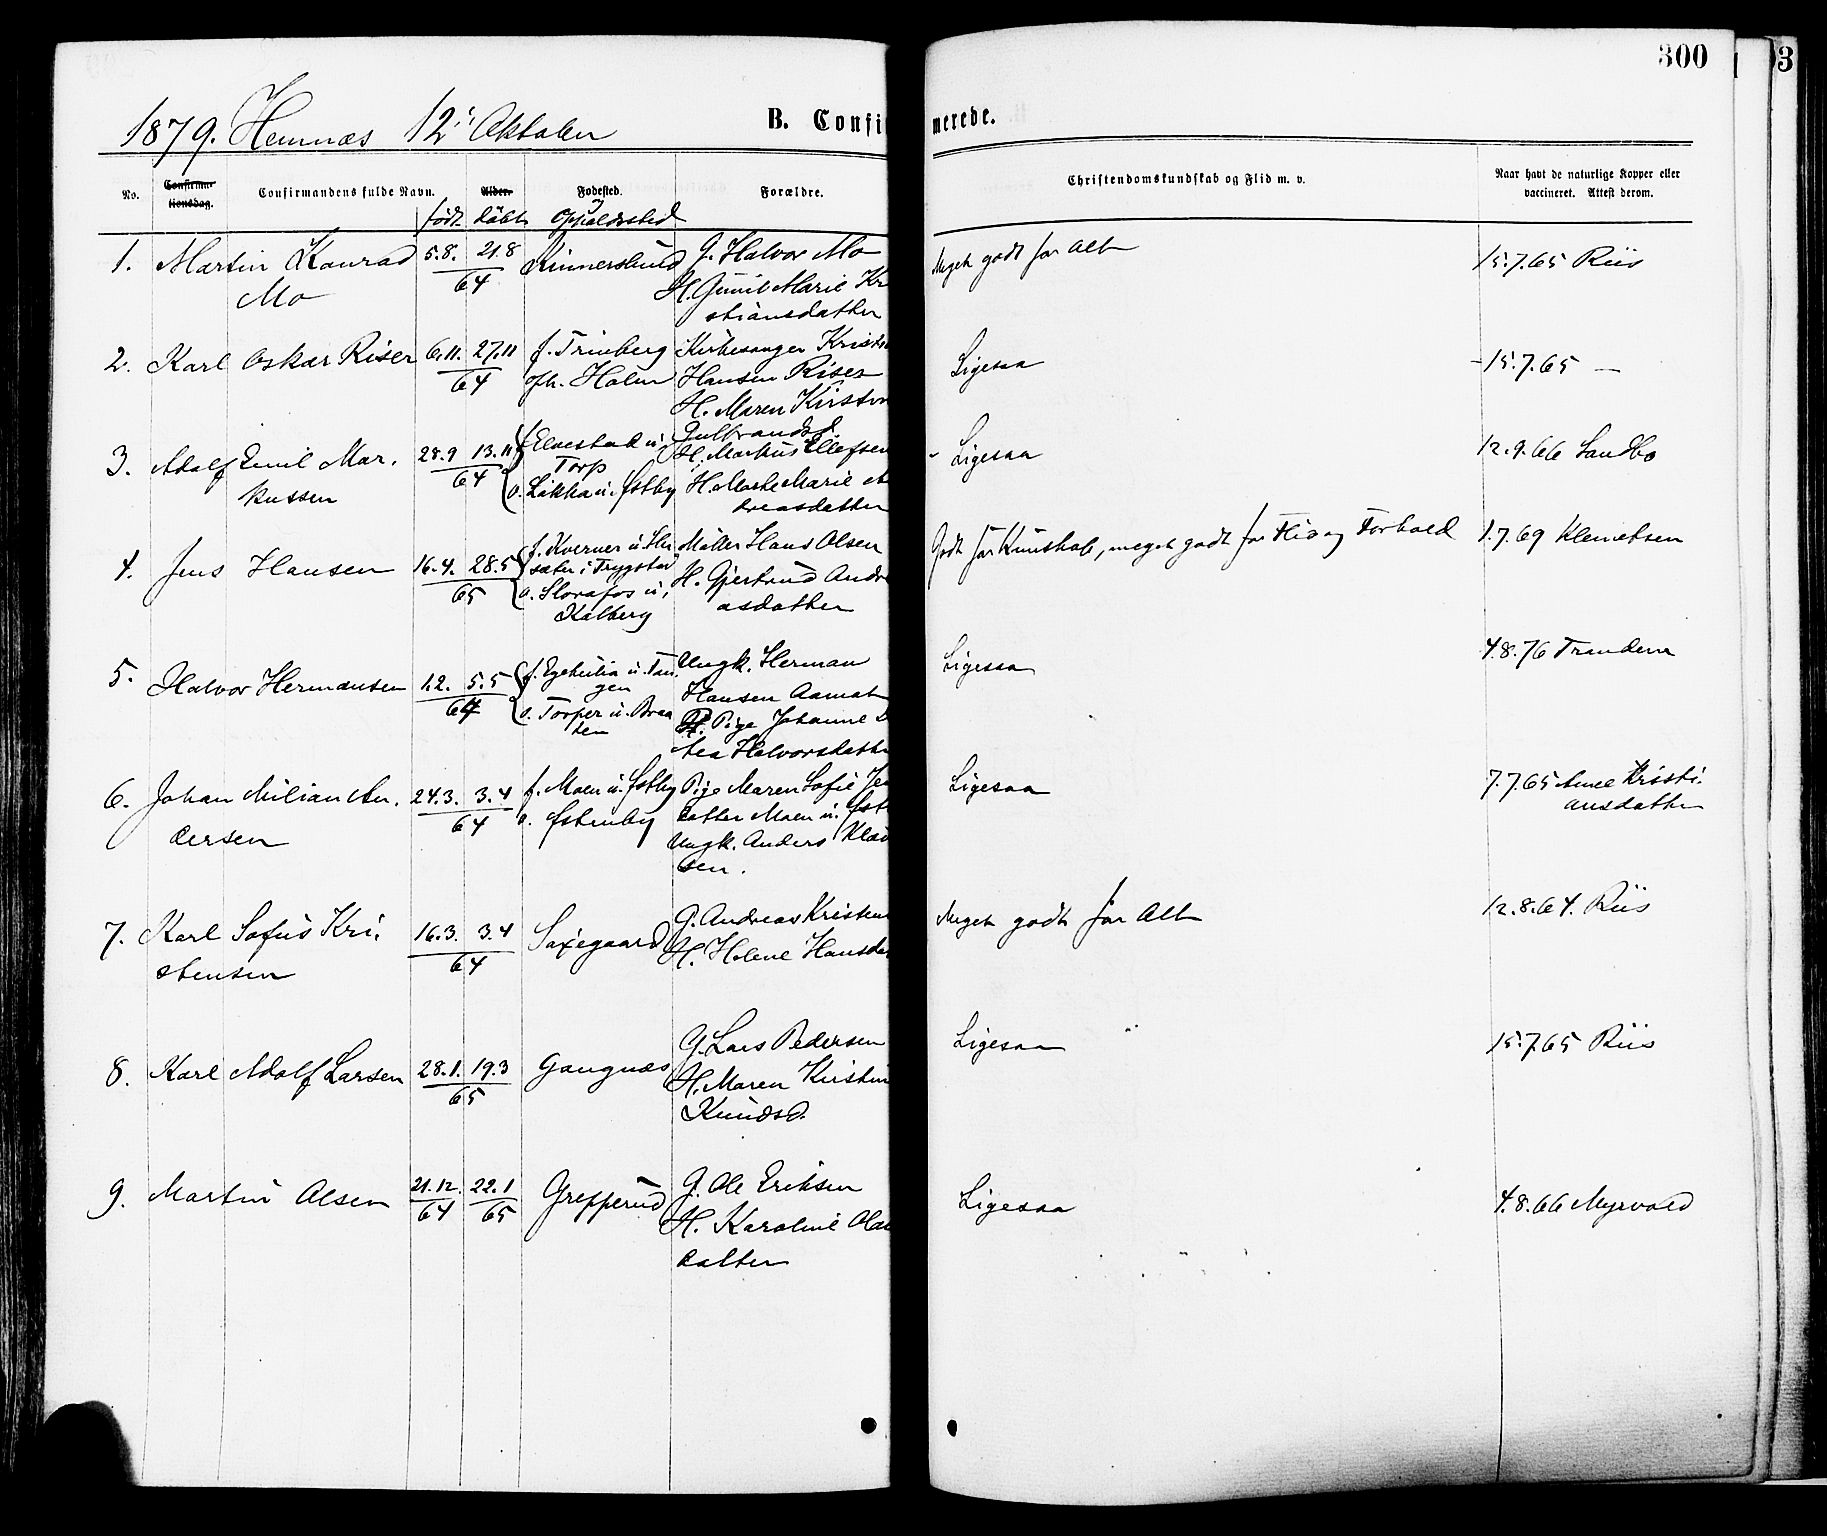 300
3
1879. Hemnæs 12te Oktober
B. Confir
merede.
No.
Confirma-
tionsdag.
Confirmandens fulde Navn.
født
Alder.
døbt
Fødested.
og
Opholdssted
Forældre.
Christendomskundskab og Flid m. v.
Naar havt de naturlige Kopper eller
vaccineret. Attest derom.
1. Martin Konrad
Mo
5.8. 21.8
64
Kinnerslund
G. Halvor Mo
H. Gunil Marie Kr
stiansdatter
Meget godt for Alt
15.7.65 Riis
2. Karl Oskar Riser
6.11. 27.11
64
f. Trinberg
oph. Holm
Kirkesanger Kristi
Hansen Riser
H. Maren Kirstin
Gulbrandsd.
Ligesaa
15.7.65 —
3. Adolf Emil Mar.
kussen
28.9 13.11
64
f. Elvestad u.
Torp
o. Løkka u. Østby
H. Markus Ellefsen
H. Marte Marie An
dreasdatter
Ligesaa
12.9.66 Sandbo
4. Jens Hansen
16.4. 28.5
65
f. Kverner u.
sæter i Trygstad
o. Slorafos u.
Kalberg
Møller Hans Olsen
H. Gjertrud Andre
asdatter
Godt for Kunskab, meget godt for Flid og Forhold
1.7.69 Klemetsen
5. Halvor Hermansen
1.2. 5.5
64
f. Egehulia u. Tan
gen
o. Torper u. Braa
ten
Ungk. Herman
Hansen Aamot
Pige Johanne D
tea Halvorsdatte
Ligesaa
4.8.76 Trandem
6. Johan Milian An.
dersen
24.3. 3.4
64
f. Moen u. Østby
o. Østenby
Pige Maren Sofie Jen
datter Moen u. Øst
Ungk. Anders Klau
sen.
Ligesaa
7.7.65 Anne Kristi.
ansdatter
7. Karl Sofus Kri.
stensen
16.3. 3.4
64
Saxegaard
G. Andreas Kristen
H. Helene Hansda
Meget godt for Alt
12.8.64. Riis
8. Karl Adolf Larsen
28.1. 19.3
65
Gangnæs
G. Lars Pedersen
H. Maren Kirstin
Knudsd.
Ligesaa
15.7.65 Riis
9. Martin Olsen
21.12. 22.1
64 65
Grepperud
G. Ole Eriksen
H. Karoline Ola
datter
Ligesaa
4.8.66 Myrvold